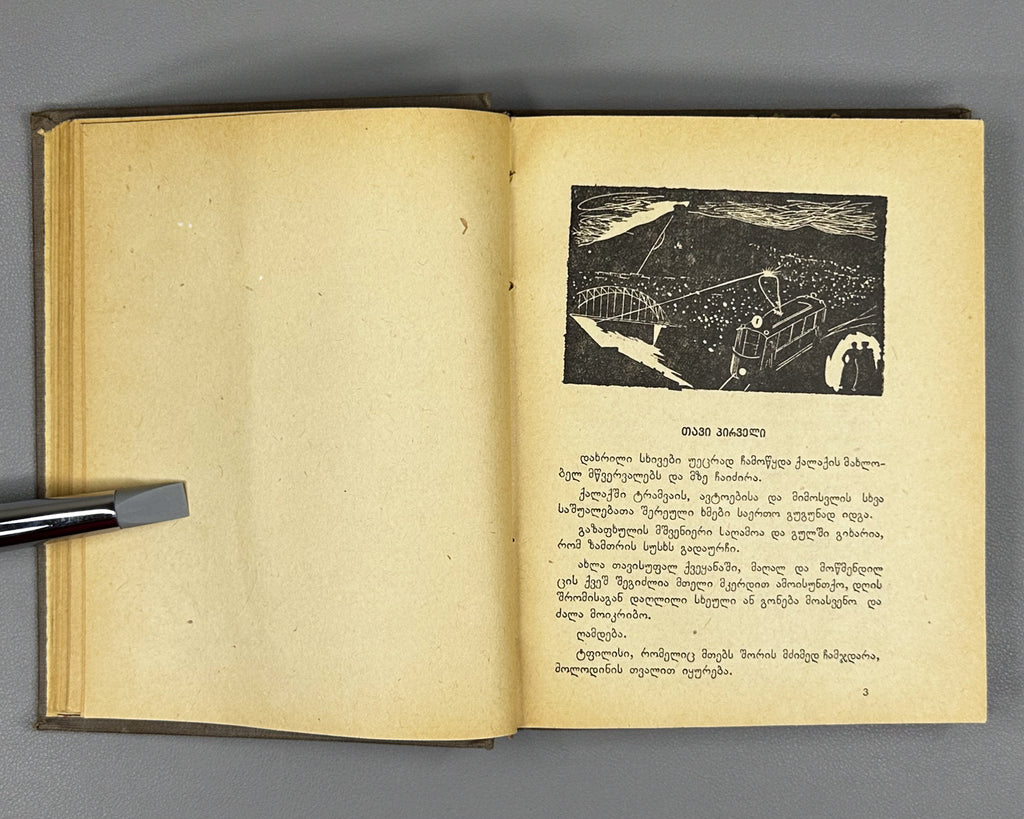 თავი პირველი
დახრილი სხივები უეცრად ჩამოწყდა ქალაქის მახლო-
ბელ მწვერვალებს და მზე ჩაიძირა.
ქალაქში ტრამვაის, ავტოებისა და მიმოსვლის სხვა
საშუალებათა შერეული ხმები საერთო გუგუნად იდგა.
გაზაფხულის მშვენიერი საღამოა და გულში გიხარია,
რომ ზამთრის სუსხს გადაურჩი.
ახლა თავისუფალ ქვეყანაში, მაღალ და მოწმენდილ
ცის ქვეშ შეგიძლია მთელი მკერდით ამოისუნთქო, დღის
შრომისაგან დაღლილი სხეული ან გონება მოასვენო და
ძალა მოიკრიბო.
ღამდება.
ტფილისი, რომელიც მთებს შორის მძიმედ ჩამჯდარა,
მოლოდინის თვალით იყურება.
3